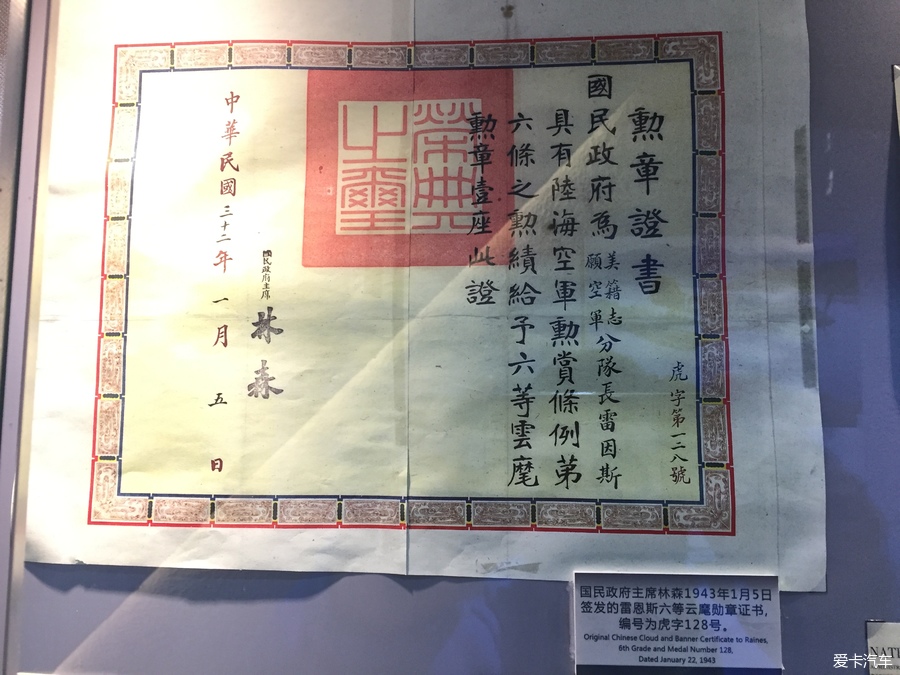 勲章證書
國民政府為美籍志
願空軍分隊長雷因斯
具有陸海空軍勲賞條例第
六條之勲績給予六等雲麾
勲章壹座此證
榮典之璽
國民政府主席
林森
中華民國三十二年一月五日
虎字第一二八號
国民政府主席林森1943年1月5日
签发的雷恩斯六等云麾勋章证书，
编号为虎字128号。
Original Chinese Cloud and Banner Certificate to Raines,
6th Grade and Medal Number 128,
Dated January 22, 1943
NATI
爱卡汽车